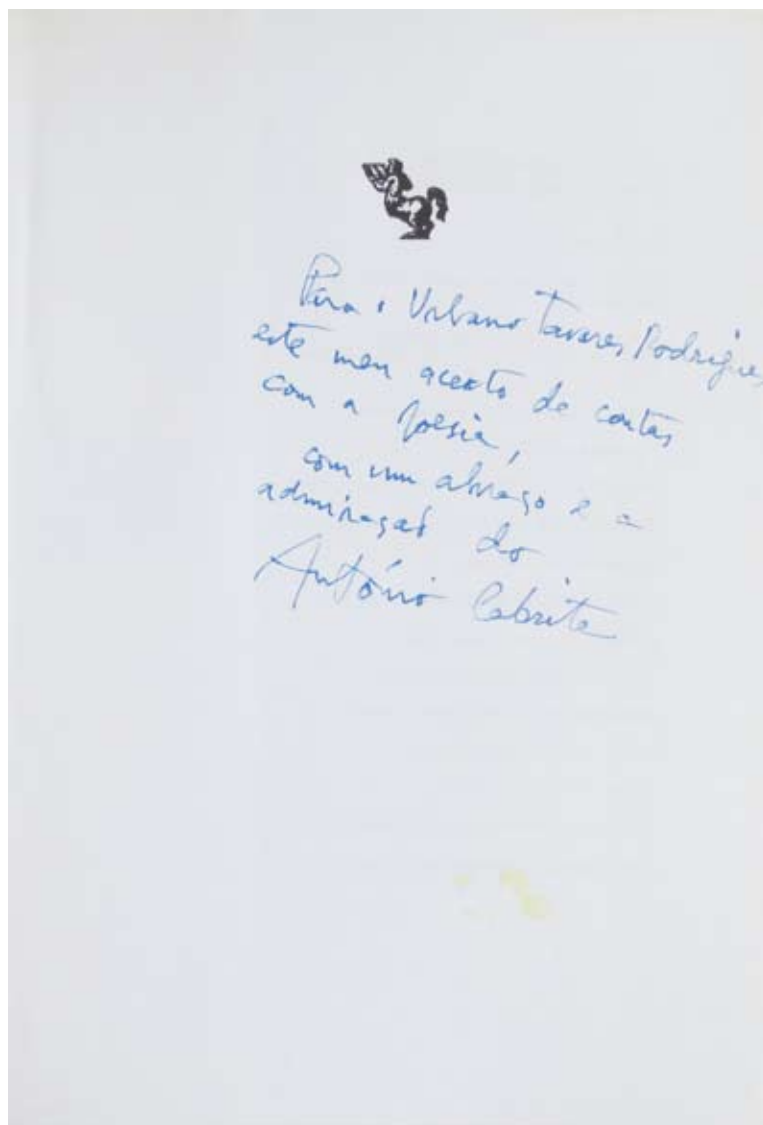 Para o Urbano Tavares Rodrigues,
este meu acerto de contas
com a poesia,
com um abraço e a
admiração do
António Cabrita